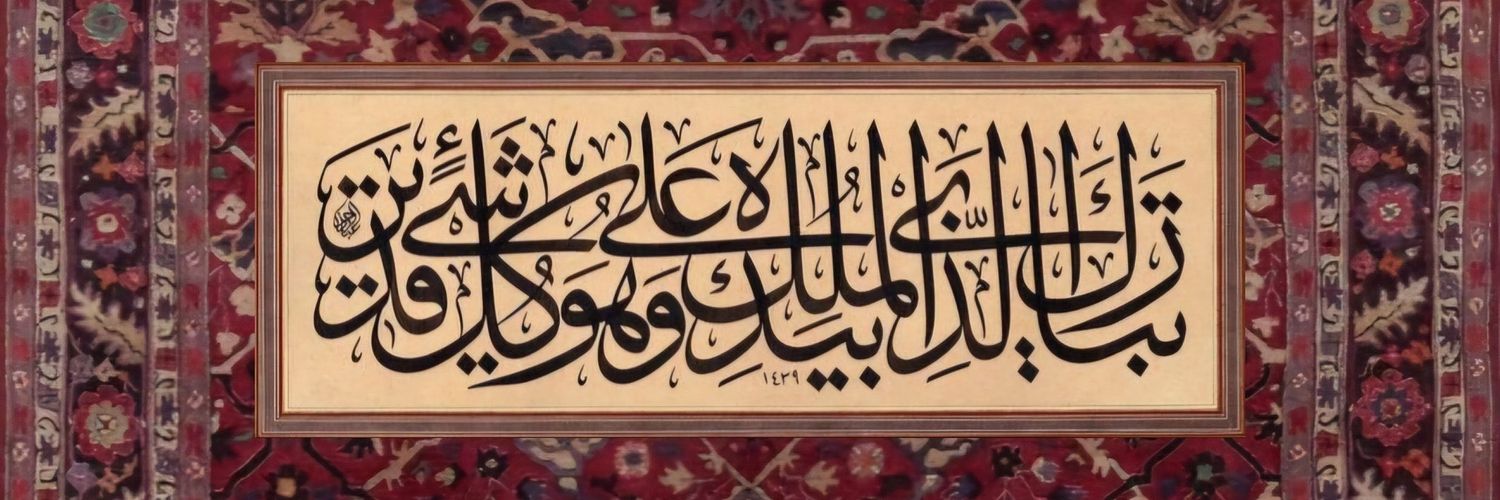 تَبَارَكَ الَّذِي بِيَدِهِ الْمُلْكُ وَهُوَ عَلَى كُلِّ شَيْءٍ قَدِيرٌ
١٤٣٩